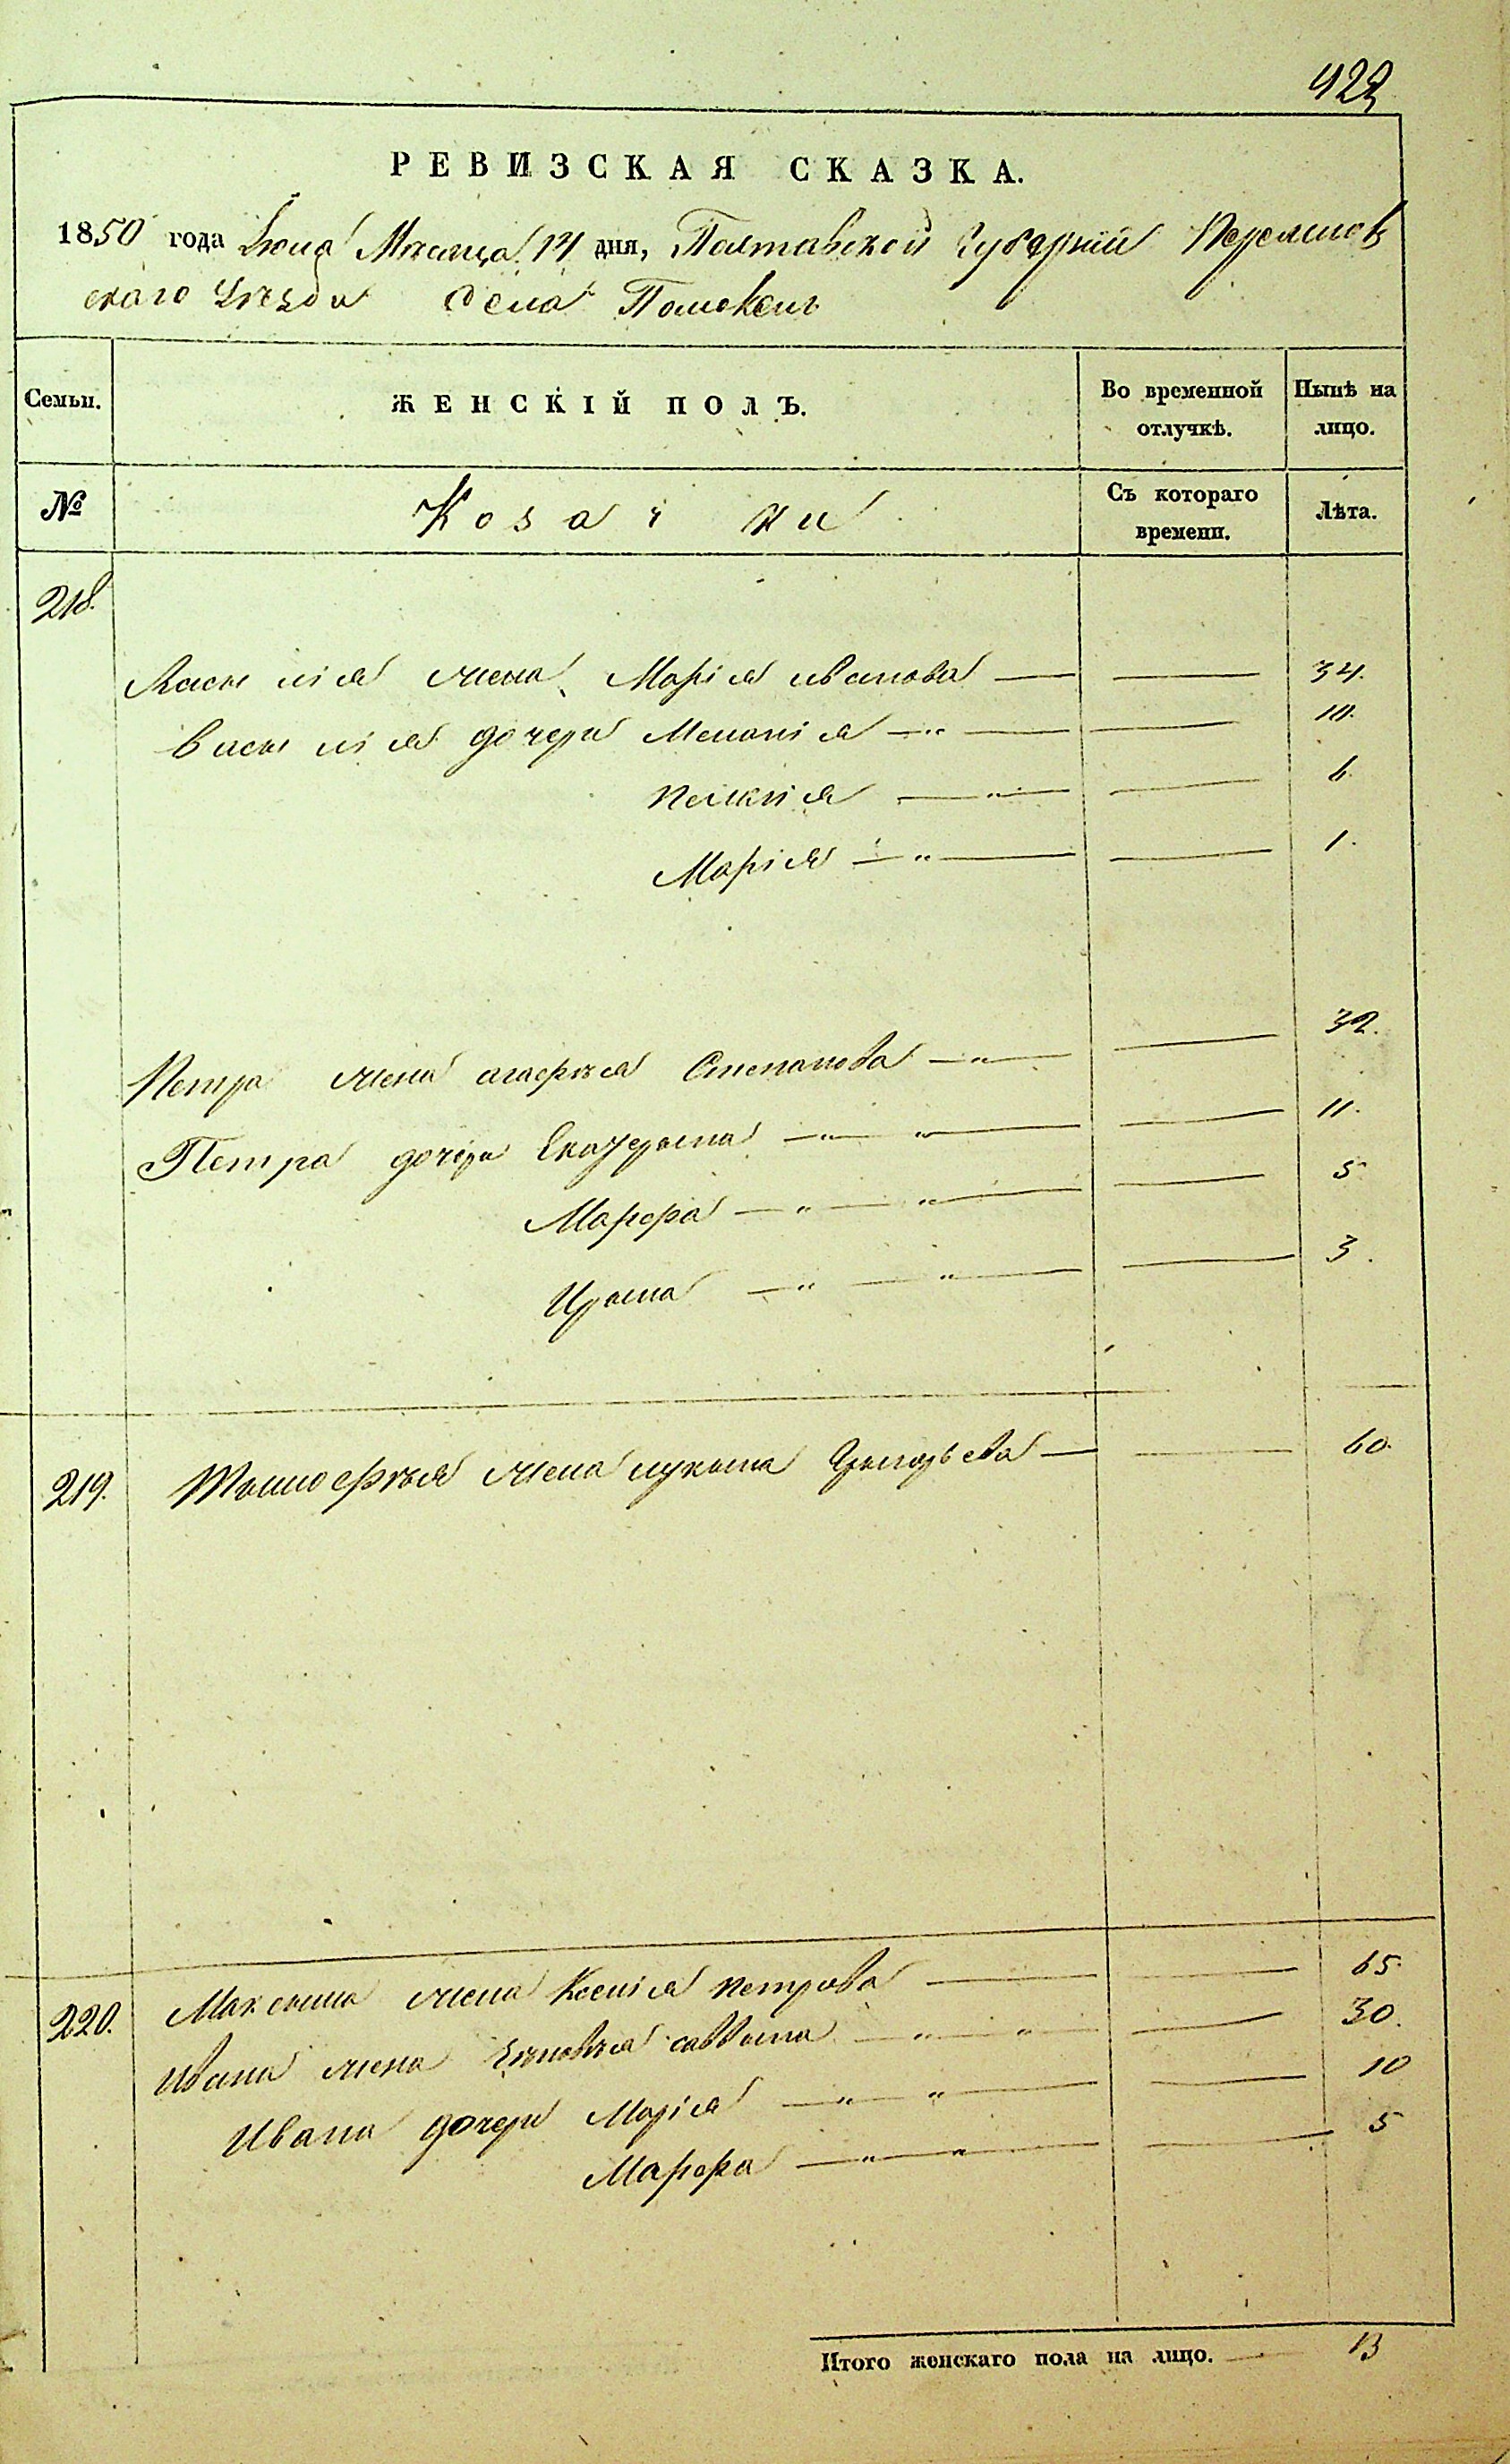 422
РЕВИЗСКАЯ СКАЗКА.
1850 года Июня Месяца 14 дня, Полтавской Губернии Переяслов
скаго Уѣзда Села Помокель
Семьи. ЖЕНСКІЙ ПОЛЪ. Во временной отлучкѣ. Нынѣ на лицо.
№ Козачки Съ котораго времени. Лѣта.
218.
Василія жена Марія иванова 34.
Василія дочери Меланія 10.
пелагія 6.
Марія 1.
Петра жена агафія Степанова 32.
Петра дочери Екатерина 11.
Марфа 5
Ирина 3.
219. Тимофѣя жена лукина Григорьева 60.
220. Максима жена Ксенія петрова 65.
Ивана жена саввина 30.
Ивана дочери Марія 10
Марфа 5
Итого женскаго пола на лицо. 13